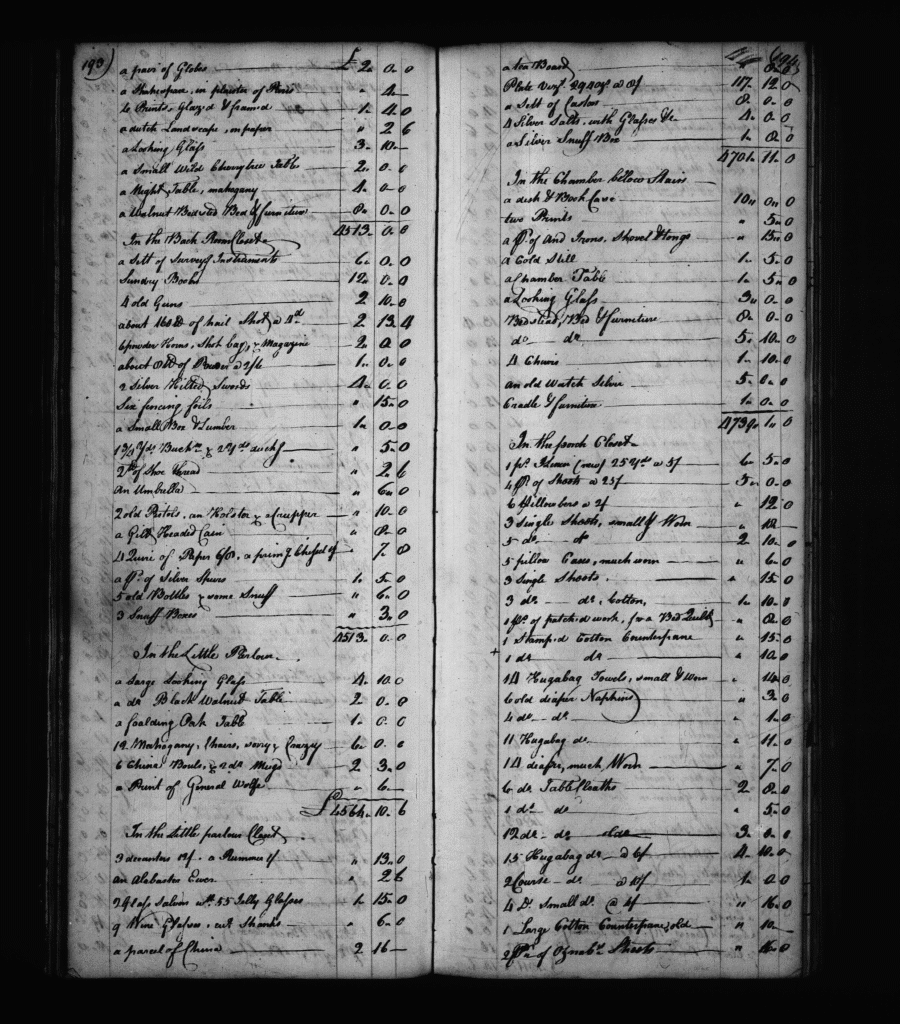 193
a pair of Globes £ 2 " 0 " 0
a Shakespear, in plaister of Paris " 4 —
4 Prints, Glaz'd & fram'd 1 " 4 0
a dutch Landscape, on paper " 2 6
a Looking Glass 3 " 10 —
a Small Wild Cherrytree Table 2 " 0 " 0
a Night Table, mahogany 4 " 0 " 0
a Walnut Bedsted Bed & furniture 8 " 0 " 0
4513 " 0 " 0
In the Back Room Closet
a Sett of Survey'g Instruments 6 " 0 " 0
Sundry Books 12 " 0 " 0
4 old Guns 2 10 " 0
about 160 lb of hail Shot, @ 4d 2 " 13 " 4
6 powder Horns, Shot bag, & Magazine 2 " 0 0
about 8 lb of Powder @ 2/6 1 " 0 " 0
2 Silver Hilted Swords 4 " 0 " 0
Six fencing foils " 15 " 0
a Small Box & Lumber 1 " 0 " 0
1 3/4 yds Buck & 2 yds " 5 " 0
2 lb of Shoe thread " 2 " 6
an Umbrella " 6 " 0
2 old Pistols, an Holster & Crupper " 10 " 0
a Gilt Headed Cain " 8 " 0
4 Quire of Paper " 7 " 8
a Pr of Silver Spurs 1 " 5 " 0
5 old Bottles & some Snuff " 6 " 0
3 Snuff Boxes " 3 " 0
4513 " 0 " 0
In the Little Parlour
a Large Looking Glass 4 " 10 0
a do Black Walnut Table 2 " 0 " 0
a foalding Oak Table 1 " 0 " 0
12 Mahogany Chairs, very Crazy 6 " 0 " 0
6 China Bowls, & 2 do Mugs 2 " 3 " 0
a Print of General Wolfe " 6 —
£4564 " 10 " 6
In the Little parlour Closet
3 decanters 12/. a Rummer 1/ " 13 " 0
an Alabaster Ewer " 2 6
2 Glass Salvers wth 55 Jelly Glasses 1 " 15 " 0
9 Wine Glasses, cut Shanks " 6 " 0
a parcel of China 2 " 16 —
194
a tea Board " 8 " 0
Plate Vizt. 294 oz @ 8/ 117 " 12 " 0
a Sett of Castors 8 " 0 " 0
4 Silver Salts, with Glasses &c 4 " 0 " 0
a Silver Snuff Box 1 " 0 " 0
4701 " 11 " 0
In the Chamber below Stairs
a desk & Book Case 10 " 0 " 0
two Prints " 5 " 0
a Pr of And Irons, Shovel & tongs " 15 " 0
a Cold Still 1 " 5 " 0
a Chamber Table 1 " 5 " 0
a Looking Glass 3 " 0 " 0
Bedstead, Bed & furniture 8 " 0 " 0
do — do 5 " 10 " 0
4 Chairs 1 " 10 " 0
an old Watch Silver 5 " 0 " 0
Cradle & furniture 1 " 0 " 0
4739 " 1 " 0
In the porch Closet
1 ps. Linen (new) 25 yds @ 5/ 6 " 5 " 0
4 Pr of Sheets @ 25/ 5 " 0 " 0
6 Pillowbers @ 2/ " 12 " 0
3 Single Sheets, small & Worn " 18 —
5 do — do 2 " 10 " 0
5 pillow Cases, much worn " 6 " 0
3 Single Sheets " 15 " 0
3 do — do, Cotton 1 " 10 " 0
1 ps. of patched work, for a Bed Quilt " 8 " 0
1 Stamped Cotton Counterpane " 15 " 0
+ 1 do — do " 10 " 0
14 Hugabag Towels, small & Worn " 14 " 0
6 old diaper Napkins " 3 " 0
4 do — do " 1 " 0
11 Hugabag do " 11 " 0
14 diaper, much Worn " 7 " 0
6 do Table Cloaths 2 " 8 " 0
1 do do " 5 " 0
12 do — do 3 " 0 " 0
15 Hugabag do @ 6/ 4 " 10 " 0
2 Course do @ 10/ 1 " 0 0
4 Do Small do @ 4/ " 16 " 0
1 Large Cotton Counterpane, old " 10 —
2 Pr of Oznabs Sheets " 16 " 0